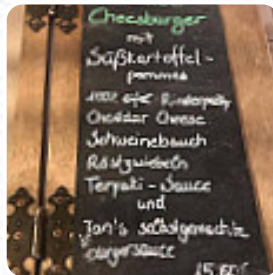 Cheesburger
mit
Süßkartoffel-
pommes
100% Rinderpatty
Cheddar Cheese
Schweinebauch
Röstzwiebeln
Teryaki - Sauce
und
Jan's selbstgemachte
Burgersauce
15,60€